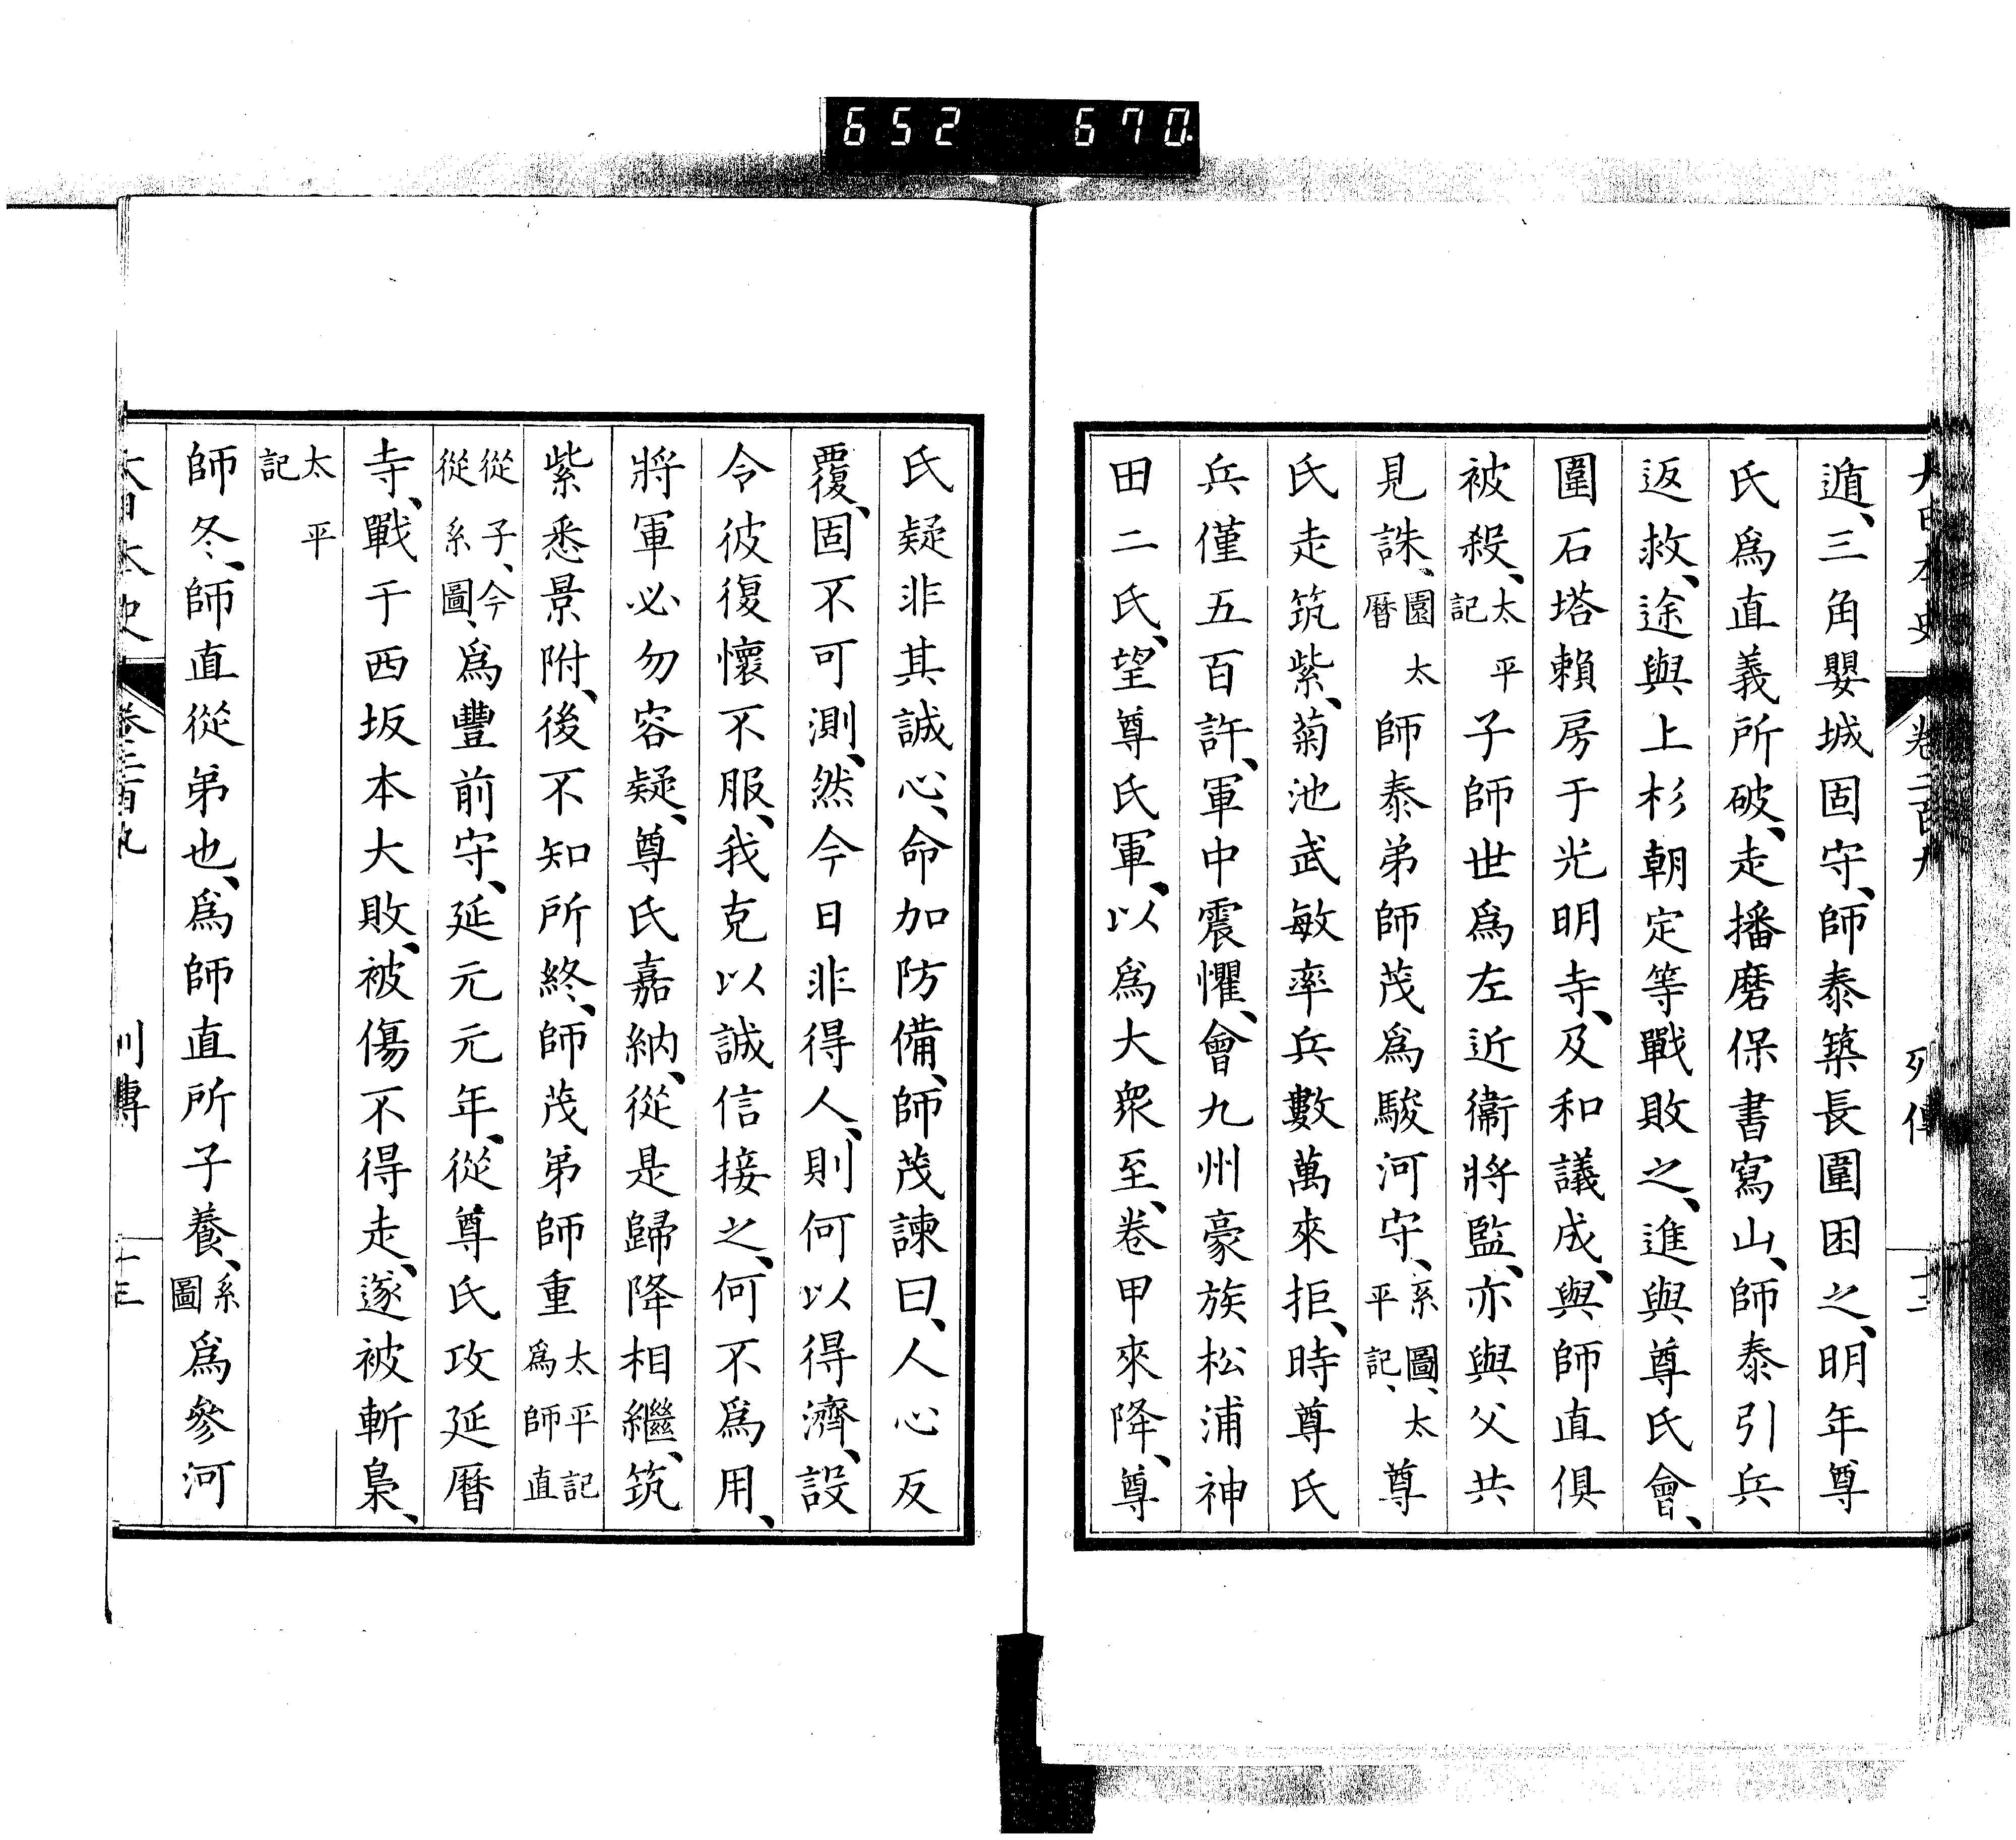 652 670
大日本史 卷二百九 列傳 十二
遁、三角嬰城固守、師泰築長圍困之、明年尊
氏爲直義所破、走播磨保書寫山、師泰引兵
返救、途與上杉朝定等戰敗之、進與尊氏會、
圍石塔賴房于光明寺、及和議成、與師直俱
被殺、太平記子師世爲左近衞將監、亦與父共
見誅、園太曆師泰弟師茂爲駿河守、系圖、太平記、尊
氏走筑紫、菊池武敏率兵數萬來拒、時尊氏
兵僅五百許、軍中震懼、會九州豪族松浦神
田二氏、望尊氏軍、以爲大衆至、卷甲來降、尊
氏疑非其誠心、命加防備、師茂諫曰、人心反
覆、固不可測、然今日非得人、則何以得濟、設
令彼復懷不服、我克以誠信接之、何不爲用、
將軍必勿容疑、尊氏嘉納、從是歸降相繼、筑
紫悉景附、後不知所終、師茂弟師重太平記爲師直
從子、今從系圖、爲豐前守、延元元年、從尊氏攻延曆
寺、戰于西坂本大敗、被傷不得走、遂被斬梟、
太平記
師冬、師直從弟也、爲師直所子養、系圖爲參河
大日本史 卷二百九 列傳 十三